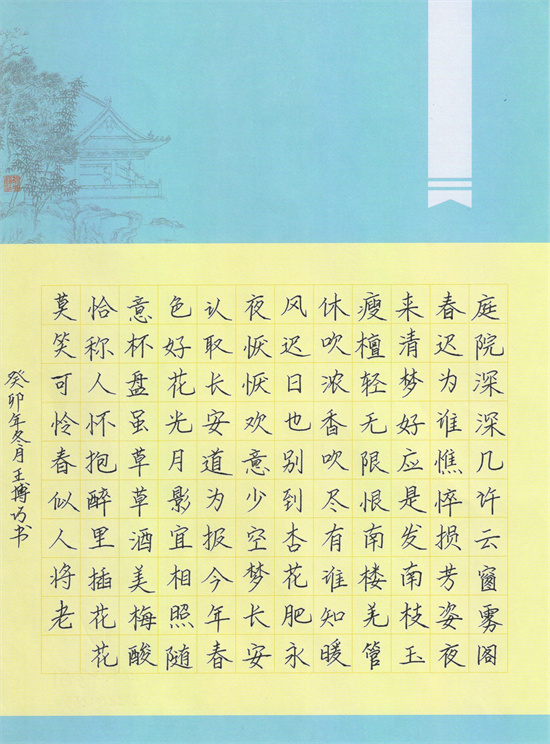 庭院深深几许云窗雾阁
春迟为谁憔悴损芳姿夜
来清梦好应是发南枝玉
瘦檀轻无限恨南楼羌管
休吹浓香吹尽有谁知暖
风迟日也别到杏花肥永
夜恹恹欢意少空梦长安
认取长安道为报今年春
色好花光月影宜相照随
意杯盘虽草草酒美梅酸
恰称人怀抱醉里插花花
莫笑可怜春似人将老
癸卯年冬月王博巧书